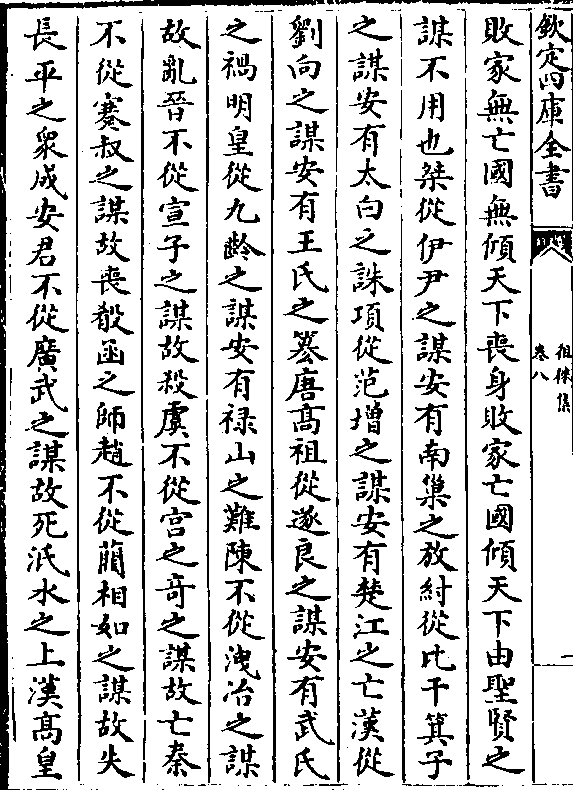 欽定四庫全書
徂徠集
卷八
一
敗家無亡國無傾天下喪身敗家亡國傾天下由聖賢之
謀不用也桀從伊尹之謀安有南巢之放紂從比干箕子
之謀安有太白之誅項從范增之謀安有楚江之亡漢從
劉向之謀安有王氏之簒唐高祖從遂良之謀安有武氏
之禍明皇從九齡之謀安有禄山之難陳不從洩冶之謀
故亂晉不從宣子之謀故殺虞不從宫之奇之謀故亡秦
不從蹇叔之謀故喪殽函之師趙不從藺相如之謀故失
長平之衆成安君不從廣武之謀故死泜水之上漢高皇